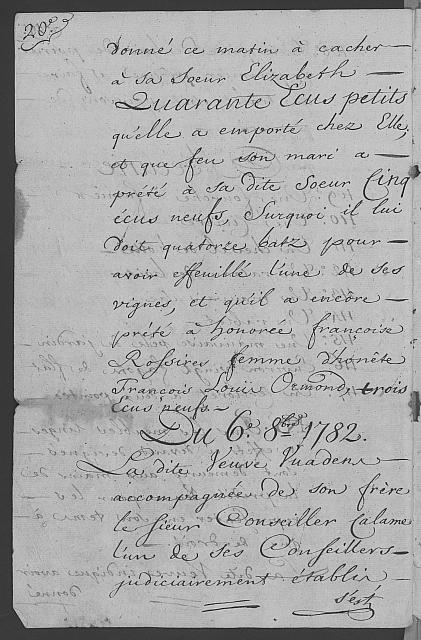 20.e
donné ce matin à cacher
à sa Soeur Elizabeth —
Quarante Ecus petits
qu'elle a emporté chez Elle,
et que feu son mari a —
prété à sa dite Soeur Cinq
écus neufs, Surquoi il lui
doit quatorze batz pour —
avoir effeuillé l'une de ses
vignes, et qu'il a encore —
prété à honorée françoise
Rossires femme d'honête
François Louis Osmond, trois
Ecus neufs. —
Du 6.e 8bre 1782.
La dite Veuve Vuadens
accompagnée de son frère
le Sieur Conseiller Calame
l'un de ses Conseillers —
judiciairement établis —
s'est